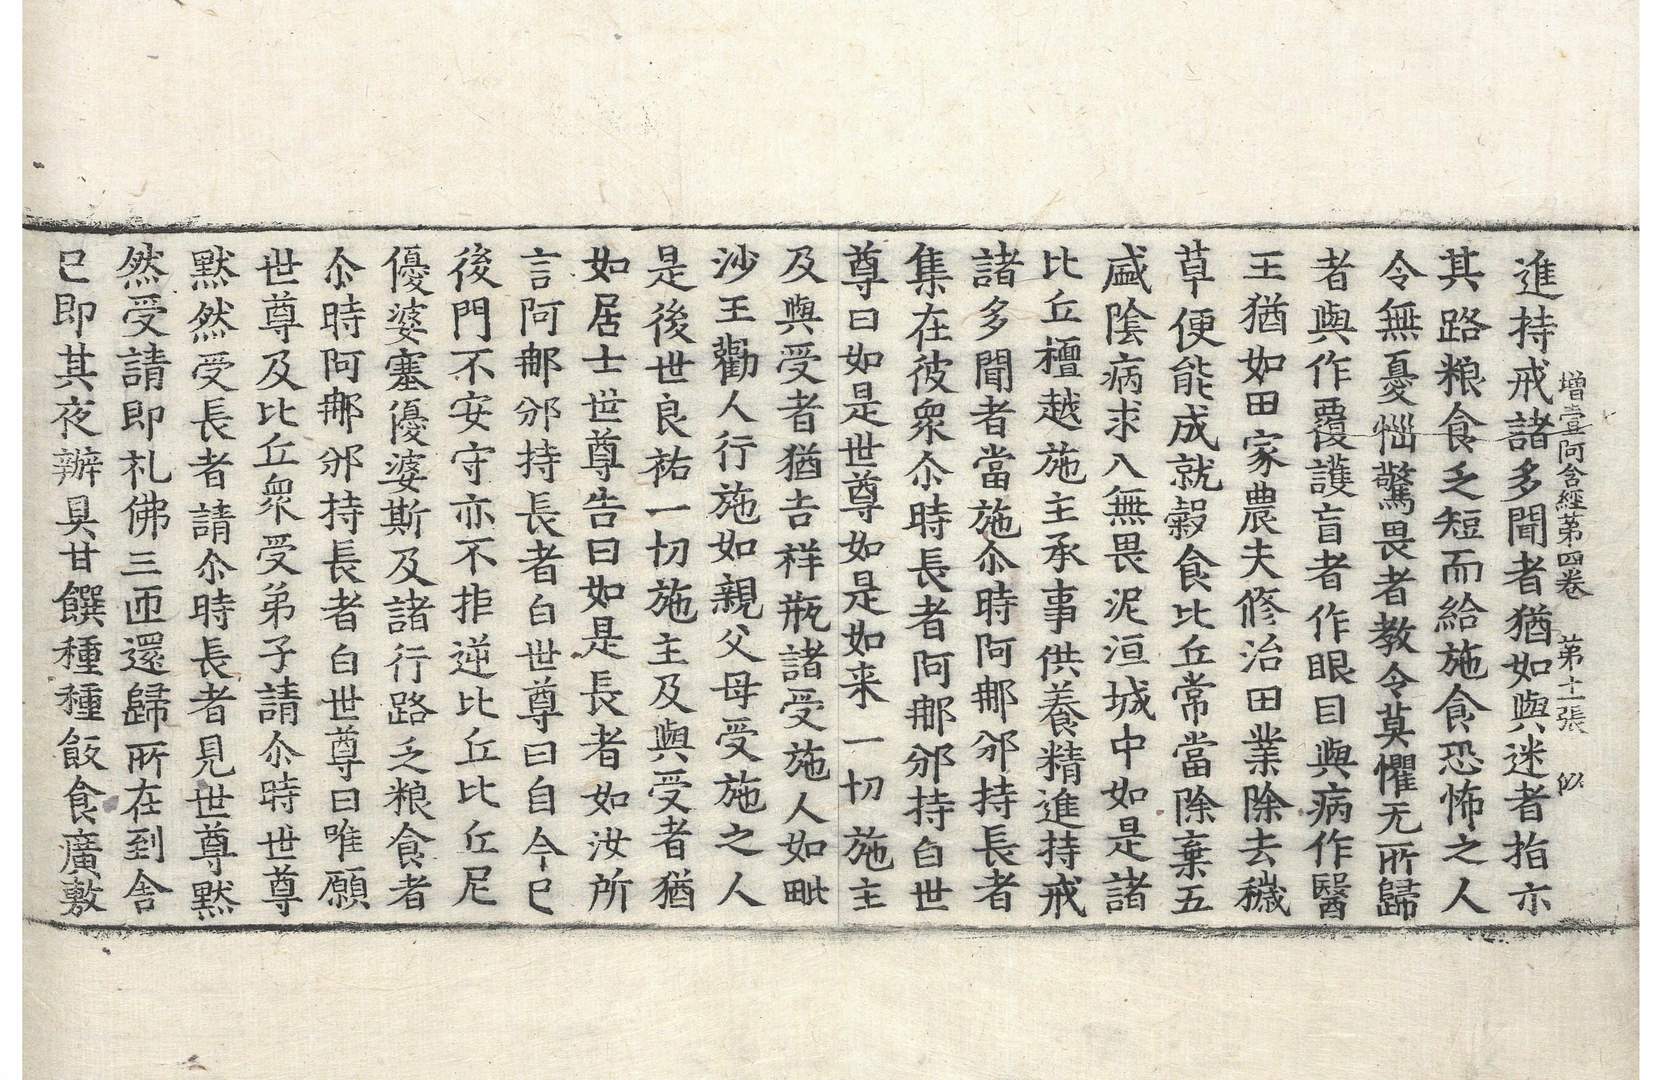 增壹阿含經第四卷 第十一張 似
進持戒諸多聞者猶如與迷者指亦
其路粮食乏短而給施食恐怖之人
令無憂惱驚畏者教令莫懼无所歸
者與作覆護盲者作眼目與病作醫
王猶如田家農夫修治田業除去穢
草便能成就穀食比丘常當除棄五
盛陰病求入無畏泥洹城中如是諸
比丘檀越施主承事供養精進持戒
諸多聞者當施尒時阿那邠持長者
集在彼衆尒時長者阿那邠持白世
尊曰如是世尊如是如来一切施主
及與受者猶吉祥瓶諸受施人如毗
沙王勸人行施如親父母受施之人
是後世良祐一切施主及與受者猶
如居士世尊告曰如是長者如汝所
言阿那邠持長者白世尊曰自今已
後門不安守亦不拒逆比丘比丘尼
優婆塞優婆斯及諸行路乏粮食者
尒時阿那邠持長者白世尊曰唯願
世尊及比丘衆受弟子請尒時世尊
默然受長者請尒時長者見世尊默
然受請即礼佛三匝還歸所在到舍
已即其夜辦具甘饌種種飯食廣敷